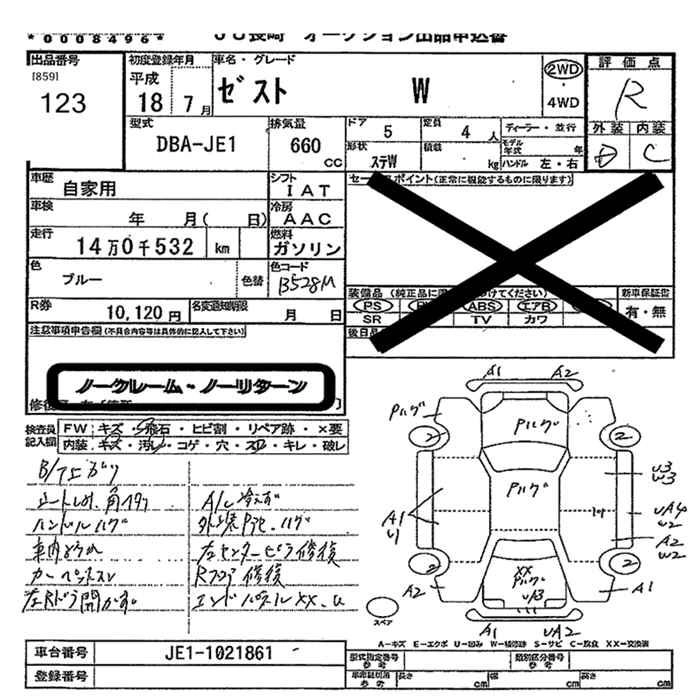 *0008496*
JU長崎 オークション出品申込書
出品番号
[859]
123
初度登録年月
平成
18 7月
車名・グレード
ゼスト W
2WD
・
4WD
評価点
R
外装 内装
D C
型式
DBA-JE1
排気量
660
CC
ドア 5
定員 4 人
ディーラー・並行
モデル年式 年
形状 ステW
積載 kg
ハンドル 左・右
車歴
自家用
シフト
IAT
車検
年 月( 日)
冷房
AAC
走行
14万0千532 km
燃料
ガソリン
色
ブルー
色替
色コード
B528M
R券
10,120円
名変通知期限
月 日
セールスポイント(正常に機能するものに限ります)
装備品
PS
ABS
エアB
SR
TV
カワ
新車保証書
有・無
後日品
注意事項申告欄(不具合内容等は具体的に記入して下さい)
ノークレーム・ノーリターン
検査員記入欄
FW キズ・飛石・ヒビ割・リペア跡・×要
内装 キズ・汚レ・コゲ・穴・スレ・キレ・破レ
ハンドルハゲ
A/C冷えず
右センターピラ修復
Rフロア修復
左Rドア開かず
エンドパネルXX、U
A2
A1
Pハゲ
Pハゲ
2
2
Pハゲ
U3
W3
A1
U
UA4
W2
A2
W2
2
2
XX
Pハゲ
A2
A1
A1
UA2
スペア
A-キズ E-エクボ U-凹み W-補修跡 S-サビ C-腐食 XX-交換済
車台番号
JE1-1021861
登録番号
型式指定番号
参考
類別区分番号
参考
長さ cm
幅 cm
高さ cm